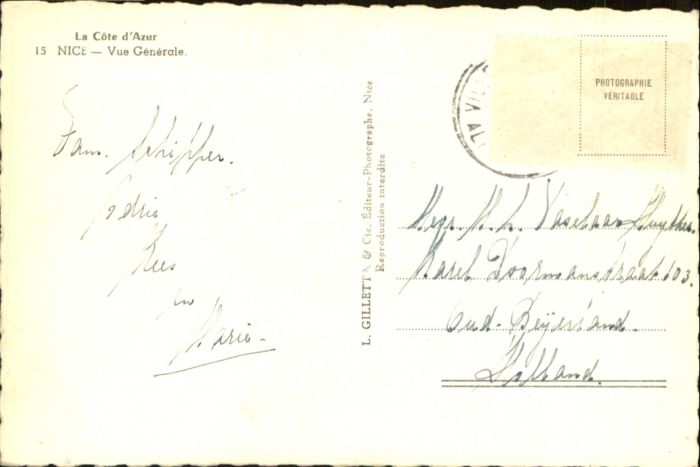 La Côte d'Azur
15 NICE — Vue Générale.
PHOTOGRAPHIE
VÉRITABLE
VILL
AL
Fam. Schipper.
Kees
en
Mario
L. GILLETTA & Cie, Éditeur-Photographe, Nice
Reproduction interdite
Karel Doormanstraat 103.
Oud-Beijerland.
Holland.